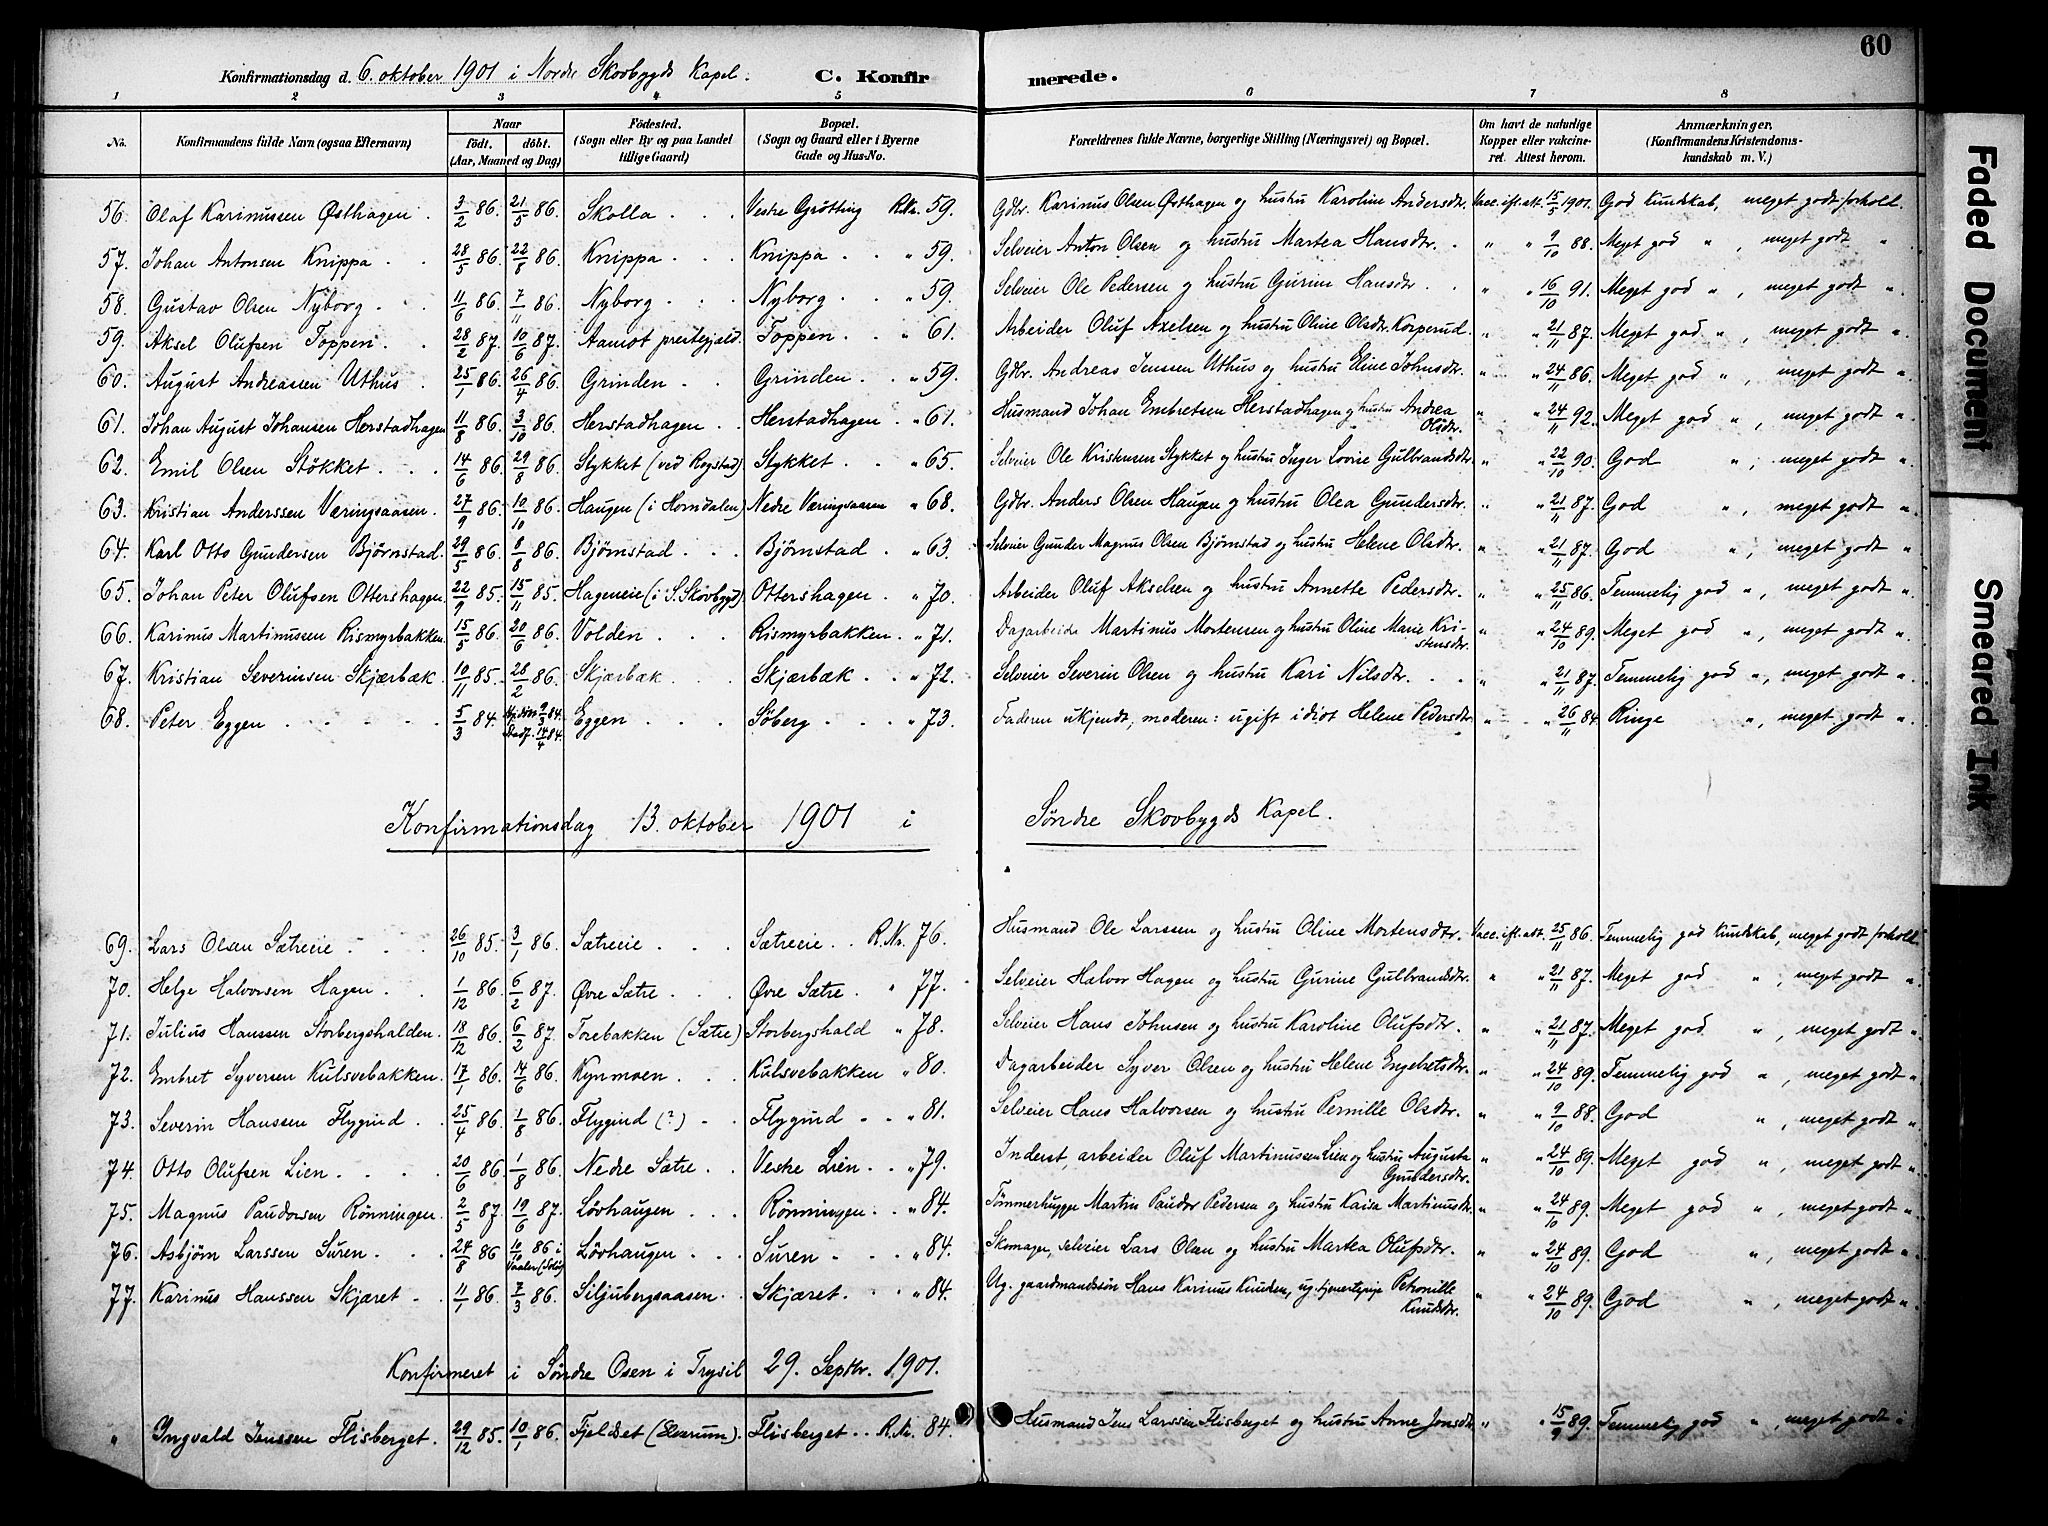 60
Konfirmationsdag d. 6. oktober 1901 i Nordre Skovbygds Kapel. C. Konfirmerede.
1 2 3 4 5 6 7 8
No. Konfirmandens fulde Navn (ogsaa Efternavn) Naar født. døbt. (Aar, Maaned og Dag) Fødested. (Sogn eller By og paa Landet tillige Gaard) Bopæl. (Sogn og Gaard eller i Byerne Gade og Hus-No. Forældrenes fulde Navne, borgerlige Stilling (Næringsvei) og Bopæl. Om havt de naturlige Kopper eller vakcineret. Attest herom. Anmærkninger. (Konfirmandens Kristendomskundskab m. V.)
56. Olaf Karinussen Østhagen. 3/2 86. 21/5 86. Skolla Vestre Grötting R.Nr. 59. Gdbr. Karinus Olsen Østhagen og hustru Karoline Andersdtr. Vacc. ifl. att. 15/5 1901. God kundskab, meget godt forhold.
57. Johan Antonsen Knippa 28/5 86. 22/8 86. Knippa Knippa " 59. Selveier Anton Olsen og hustru Martea Hansdtr. " " 9/10 88. Meget god ", meget godt "
58. Gustav Olsen Nyborg 11/6 86. 7/11 86. Nyborg Nyborg " 59. Selveier Ole Pedersen og hustru Gurine Hansdtr. " " 16/10 91. Meget god ", meget godt "
59. Aksel Olufsen Toppen 28/2 87. 10/6 87. Aamot prestegjæld. Toppen " 61. Arbeider Oluf Axelsen og hustru Oline Olsdtr. Korperud. " " 21/11 87. Meget god ", meget godt "
60. August Andreassen Uthus 25/1 86. 26/4 86. Grinden Grinden " 59. Gdbr. Andreas Jenssen Uthus og hustru Eline Johnsdtr. " " 24/11 86. Meget god ", meget godt "
61. Johan August Johansen Herstadhagen 11/8 86. 3/10 86. Herstadhagen Herstadhagen " 61. Husmand Johan Embretsen Herstadhagen og hustru Andrea Olsdtr. " " 24/11 92. Meget god ", meget godt "
62. Emil Olsen Støkket 14/6 86. 29/8 86. Stykket (ved Rogstad) Stykket " 65. Selveier Ole Kristensen Stykket og hustru Inger Lovise Gulbrandsdtr. " " 22/10 90. God ", meget godt "
63. Kristian Anderssen Væringsaasen. 27/9 86. 10/10 86. Haugen (i Horndalen) Nedre Væringsaasen " 68. Gdbr. Anders Olsen Haugen og hustru Olea Gundersdtr. " " 21/11 87. God ", meget godt "
64. Karl Otto Gundersen Bjørnstad. 29/5 86. 8/8 86. Bjørnstad Bjørnstad " 63. Selveier Gunder Magnus Olsen Bjørnstad og hustru Helene Olsdtr. " " 21/11 87. God ", meget godt "
65. Johan Peter Olufsen Ottershagen. 22/9 85. 15/11 85. Hageneie (i S. Skovbygd). Ottershagen " 70. Arbeider Oluf Akselsen og hustru Annette Pedersdtr. " " 25/11 86. Temmelig god ", meget godt "
66. Karinus Martinussen Rismyrbakken. 15/5 86. 20/6 86. Volden Rismyrbakken. " 71. Dagarbeider Martinus Mortensen og hustru Oline Marie Kristensdtr. " " 24/10 89. Meget god ", meget godt "
67. Kristian Severinsen Skjærbæk 10/11 85. 28/2 86. Skjærbæk Skjærbæk " 72. Selveier Severin Olsen og hustru Kari Nilsdtr. " " 21/11 87. Temmelig god ", meget godt "
68. Peter Eggen 5/3 84. Hj.döbt 9/3 84. Stadf. 14/4 84. Eggen Söberg " 73. Faderen ukjendt, moderen: ugift idiot Helene Pedersdtr. " " 26/11 84 Ringe ", meget godt "
Konfirmationsdag 13. oktober 1901 i Søndre Skovbygds Kapel.
69. Lars Olsen Sætreeie 26/10 85. 3/1 86. Sætreeie Sætreeie R.Nr. 76. Husmand Ole Larssen og hustru Oline Mortensdtr. Vacc. ifl. att. 25/11 86. Temmelig god kundskab, meget godt forhold.
70. Helge Halvorsen Hagen 1/12 86. 6/2 87. Øvre Sætre Øvre Sætre " 77. Selveier Halvor Hagen og hustru Gurine Gulbrandsdtr. " " 21/11 87. Meget god ", meget godt "
71. Julius Hanssen Storbergshalden. 18/12 86. 6/2 87. Torebakken (Sætre) Storbergshald " 78. Selveier Hans Johnsen og hustru Karoline Olufsdtr. " " 21/11 87. Meget god ", meget godt "
72. Embret Syversen Kulsvebakken. 17/1 86. 14/6 86. Kynmoen Kulsvebakken " 80. Dagarbeider Syver Olsen og hustru Helene Engebretsdtr. " " 24/10 89. Temmelig god ", meget godt "
73. Severin Hanssen Flygind 25/4 86. 1/8 86. Flygind (?) Flygind " 81. Selveier Hans Halvorsen og hustru Pernille Olsdtr. " " 9/10 88. God ", meget godt "
74. Otto Olufsen Lien 20/6 86. 1/8 86. Nedre Sætre Vestre Lien " 79. Inderst, arbeider Oluf Martinussen Lien og hustru Augusta Gundersdtr. " " 24/10 89. Meget god ", meget godt "
75. Magnus Paudorsen Rönningen. 2/5 87. 19/6 87. Lövhaugen Rönningen " 84. Tømmerhugger Martin Paudor Pedersen og hustru Kaisa Martinusdtr. " " 24/10 89. Meget god ", meget godt "
76. Asbjørn Larssen Suren 24/8 86 10/10 86 i Vaaler (Solør) Lövhaugen Suren " 84. Skomager, selveier Lars Olsen og hustru Martea Olufsdtr. " " 24/10 89. God ", meget godt "
77. Karinus Hanssen Skjæret 11/1 86. 7/3 86. Siljubergsaasen. Skjæret " 84. Ug. gaardmandssøn Hans Karinus Knudsen, ug. tjenestepige Petronille Knudsdtr. " " 24/10 89. God ", meget godt "
Konfirmeret i Søndre Osen i Trysil 29. Septbr. 1901.
" Yngvald Jenssen Flisberget. 29/12 85. 10/1 86. Fjeldset (Elverum). Flisberget R.Nr. 84. Husmand Jens Larssen Flisberget og hustru Anne Jonsdtr. " " 15/9 89. Temmelig god ", meget godt "
Faded Document
Smeared Ink